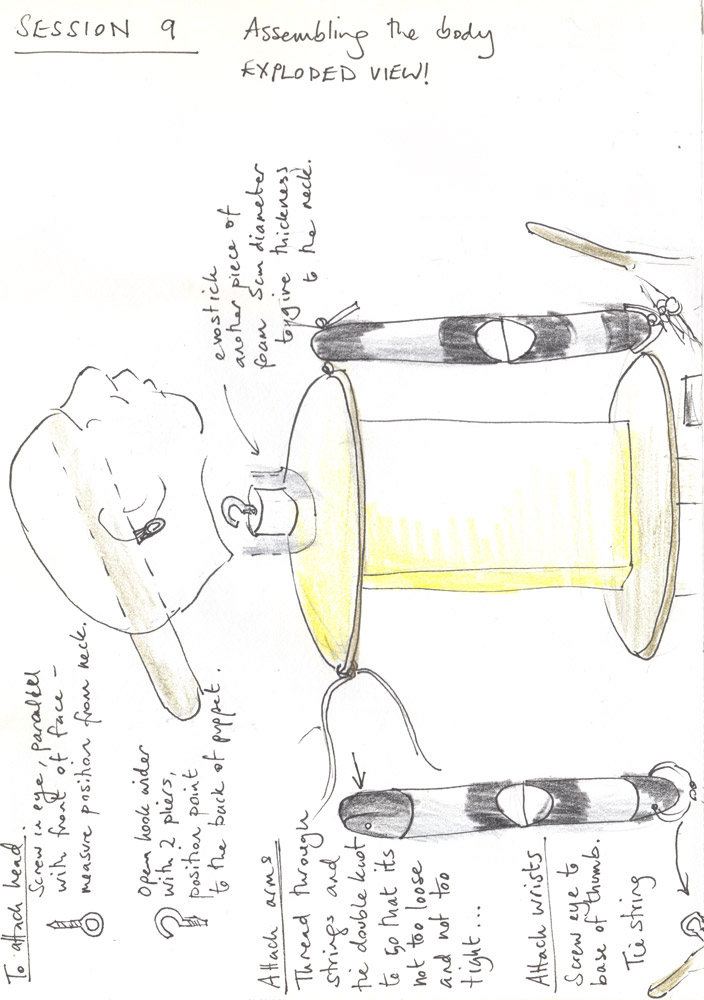 SESSION 9
Assembling the body
EXPLODED VIEW!
evostick
another piece of
foam 5cm diameter
to give thickness
to the neck.
To attach head.
Screw in eye, parallel
with front of face -
measure position from neck.
Open hook wider
with 2 pliers,
position point
to the back of puppet.
Attach arms
Thread through
strings and
tie double knot
to so that its
not too loose
and not too
tight...
Attach wrists
Screw eye to
base of thumb.
Tie string